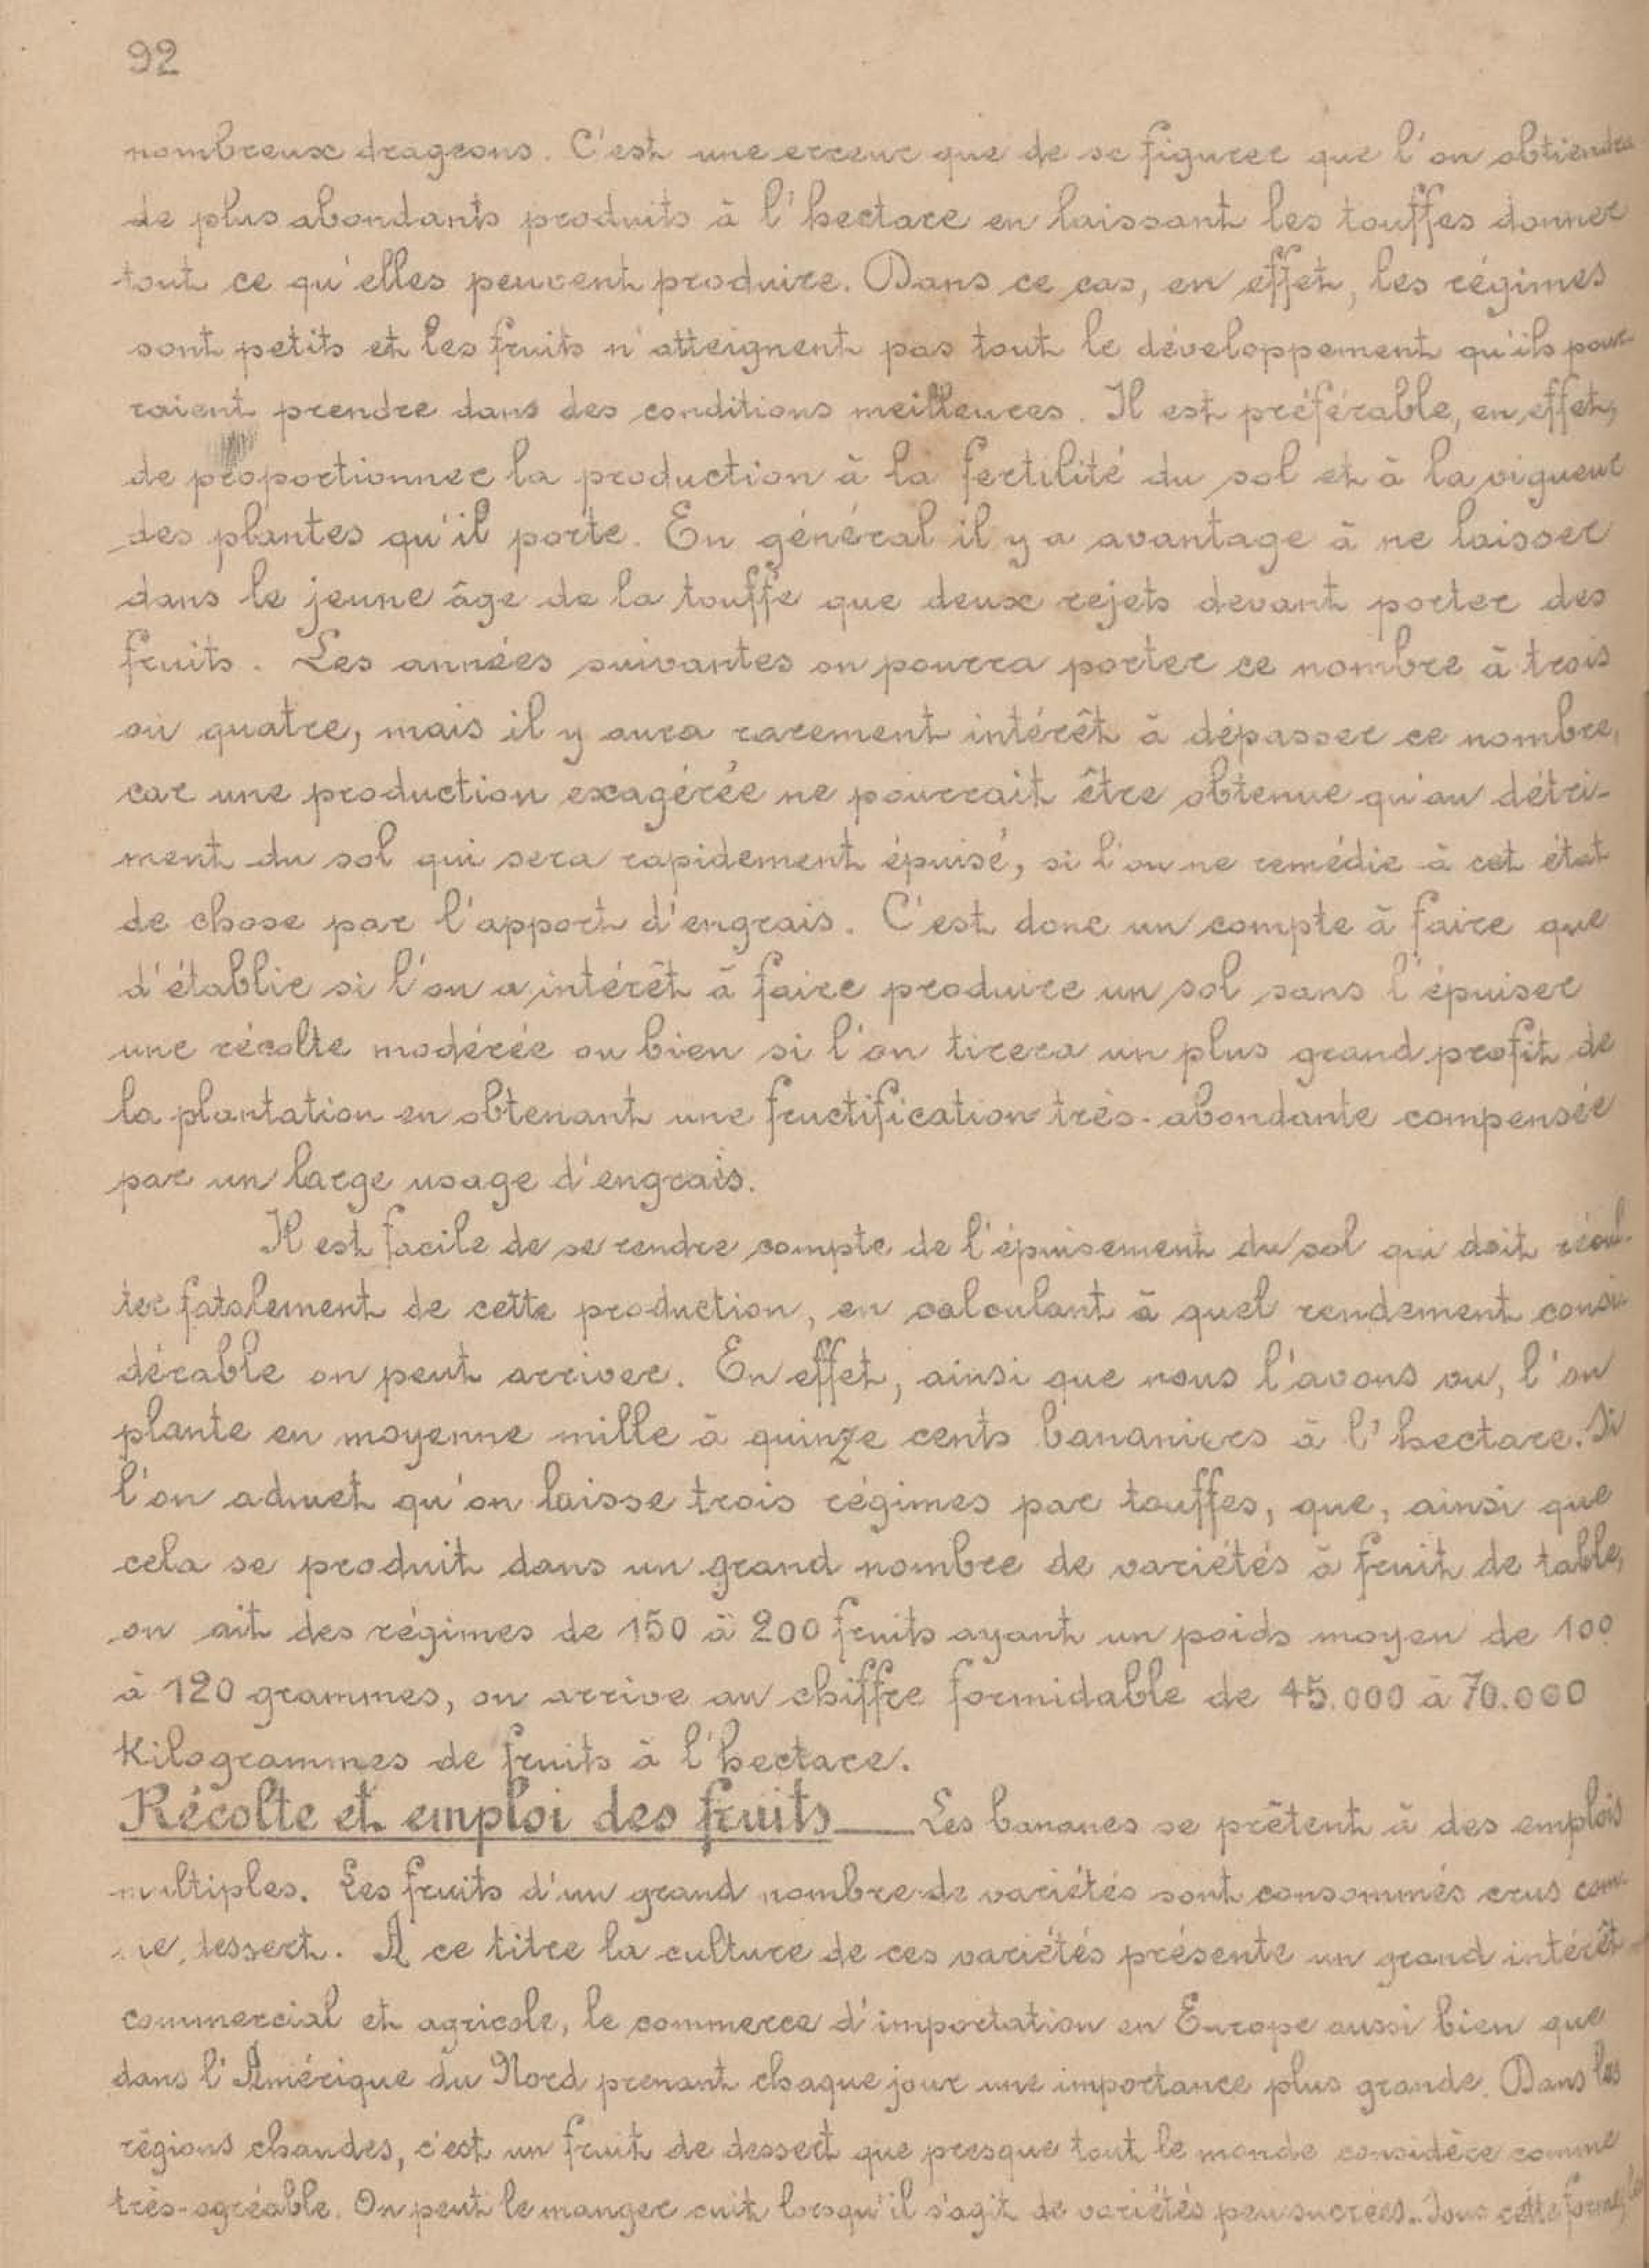 92
nombreux drageons. C'est une erreur que de se figurer que l'on obtiendra
de plus abondants produits à l'hectare en laissant les touffes donner
tout ce qu'elles peuvent produire. Dans ce cas, en effet, les régimes
sont petits et les fruits n'atteignent pas tout le développement qu'ils pour-
raient prendre dans des conditions meilleures. Il est préférable, en effet,
de proportionner la production à la fertilité du sol et à la vigueur
des plantes qu'il porte. En général il y a avantage à ne laisser
dans le jeune âge de la touffe que deux rejets devant porter des
fruits. Les années suivantes on pourra porter ce nombre à trois
ou quatre, mais il y aura rarement intérêt à dépasser ce nombre,
car une production exagérée ne pourrait être obtenue qu'au détri-
ment du sol qui sera rapidement épuisé, si l'on ne remédie à cet état
de chose par l'apport d'engrais. C'est donc un compte à faire que
d'établir si l'on a intérêt à faire produire un sol sans l'épuiser
une récolte modérée ou bien si l'on tirera un plus grand profit de
la plantation en obtenant une fructification très-abondante compensée
par un large usage d'engrais.
Il est facile de se rendre compte de l'épuisement du sol qui doit résul-
ter fatalement de cette production, en calculant à quel rendement consi-
dérable on peut arriver. En effet, ainsi que nous l'avons vu, l'on
plante en moyenne mille à quinze cents bananiers à l'hectare. Si
l'on admet qu'on laisse trois régimes par touffes, que, ainsi que
cela se produit dans un grand nombre de variétés à fruit de table,
on ait des régimes de 150 à 200 fruits ayant un poids moyen de 100
à 120 grammes, on arrive au chiffre formidable de 45.000 à 70.000
Kilogrammes de fruits à l'hectare.
Récolte et emploi des fruits — Les bananes se prêtent à des emplois
multiples. Les fruits d'un grand nombre de variétés sont consommés crus com-
me dessert. A ce titre la culture de ces variétés présente un grand intérêt
commercial et agricole, le commerce d'importation en Europe aussi bien que
dans l'Amérique du Nord prenant chaque jour une importance plus grande. Dans les
régions chaudes, c'est un fruit de dessert que presque tout le monde considère comme
très-agréable. On peut le manger cuit lorsqu'il s'agit de variétés peu sucrées. Sous cette forme,